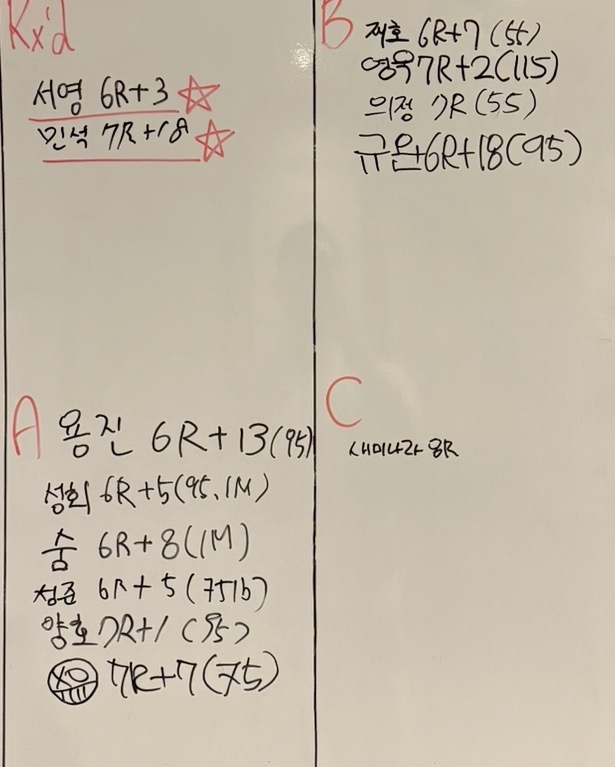 Rx'd
서영 6R+3
민석 7R+18
B
재호 6R+7 (55)
영욱 7R+2(115)
의정 7R (55)
규완 6R+18(95)
A
용진 6R+13(95)
성회 6R+5(95, 1M)
숨 6R+8(1M)
청준 6R+5 (75lb)
양호 7R+1 (95)
7R+7(75)
C
새미나라 8R